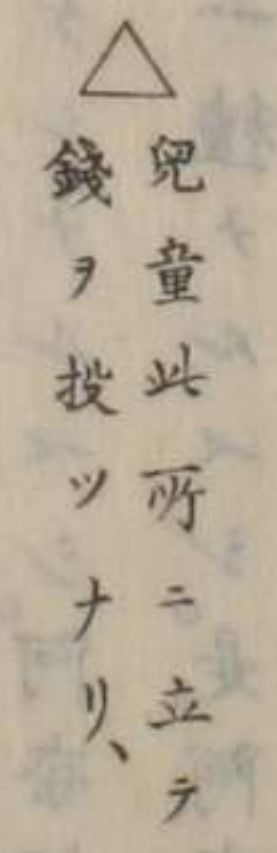 兒童此所ニ立テ
錢ヲ投ツナリ、